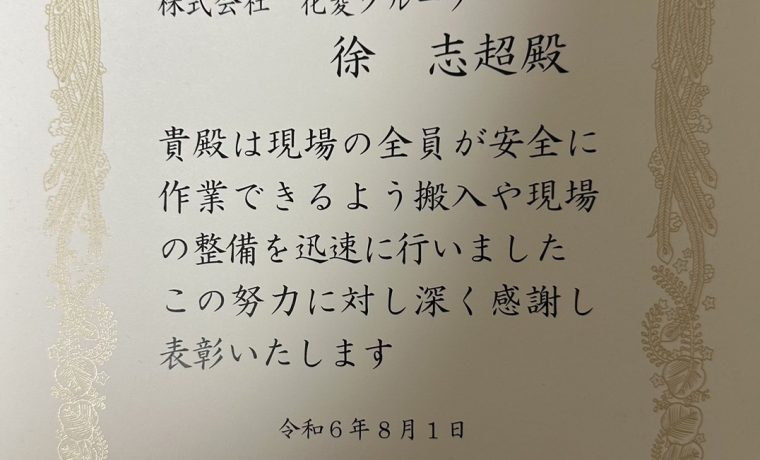 株式会社　花菱グループ
徐　志超殿
貴殿は現場の全員が安全に
作業できるよう搬入や現場
の整備を迅速に行いました
この努力に対し深く感謝し
表彰いたします
令和6年8月1日